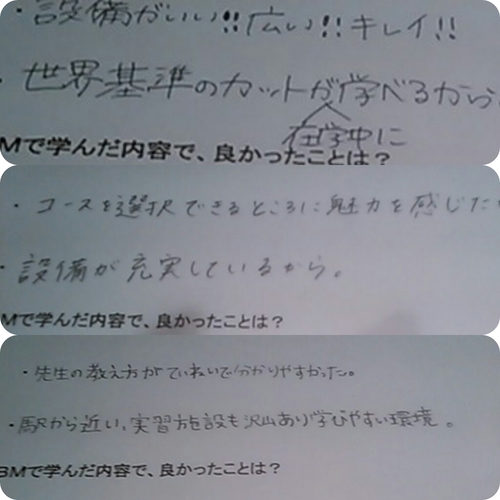 ・設備がいい!!広い!!キレイ!!
・世界基準のカットが学べるから
在学中に
Mで学んだ内容で、良かったことは?
・コースを選択できるところに魅力を感じた
・設備が充実しているから。
Mで学んだ内容で、良かったことは?
・先生の教え方がていねいで分かりやすかった。
・駅から近い、実習施設も沢山あり学びやすい環境。
BMで学んだ内容で、良かったことは?